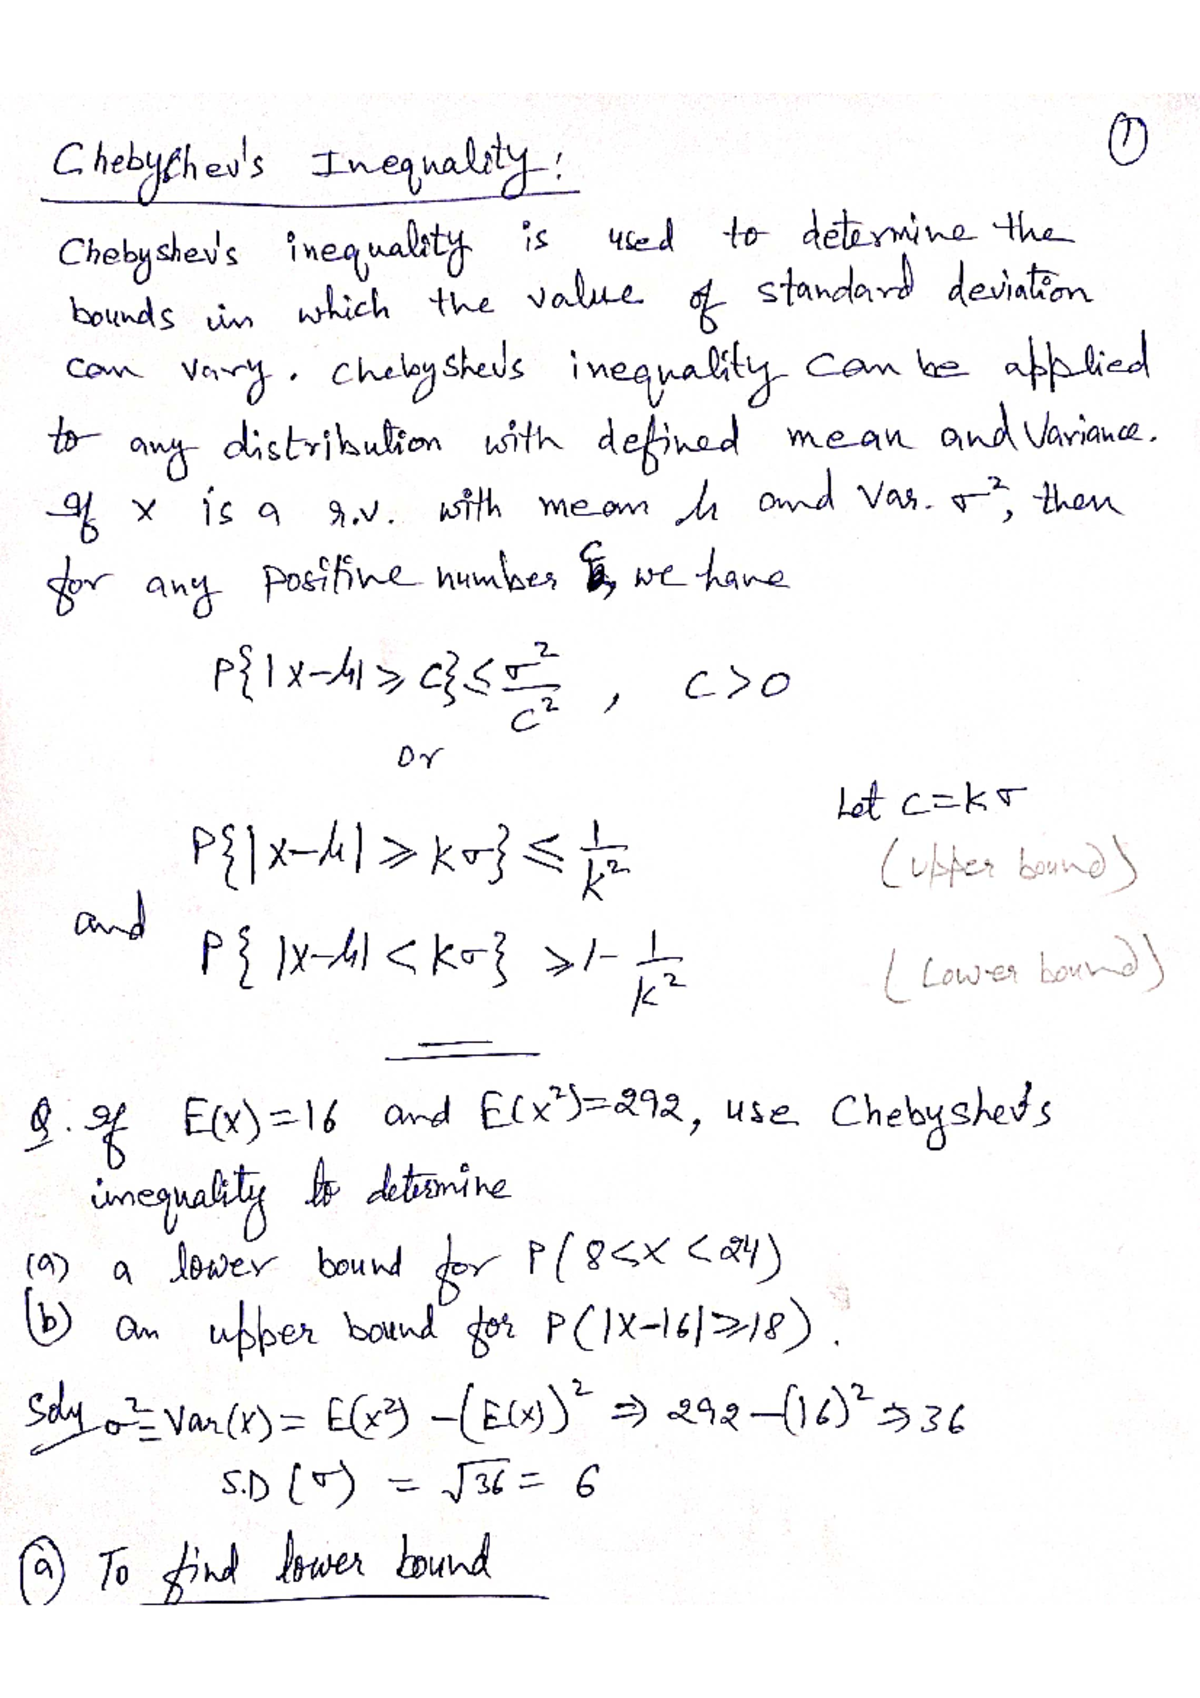 ①
Chebychev's Inequality:
Chebyshev's inequality is used to determine the
bounds in which the value of standard deviation
can vary. Chebyshev's inequality can be applied
to any distribution with defined mean and Variance.
If X is a r.v. with mean μ and Var. σ², then
for any positive number C, we have
P{|X-μ| ≥ C} ≤ σ²/C² , C>0
Or
Let C=Kσ
P{|X-μ| ≥ Kσ} ≤ 1/K² (Upper bound)
and P{|X-μ| < Kσ} ≥ 1- 1/K² (Lower bound)
Q. If E(X)=16 and E(X²)=292, use Chebyshev's
inequality to determine
(a) a lower bound for P(8<X<24)
(b) an upper bound for P(|X-16|≥18).
Soly σ²=Var(X)= E(X²) -(E(X))² ⇒ 292-(16)² ⇒ 36
S.D (σ) = √36 = 6
ⓐ To find lower bound